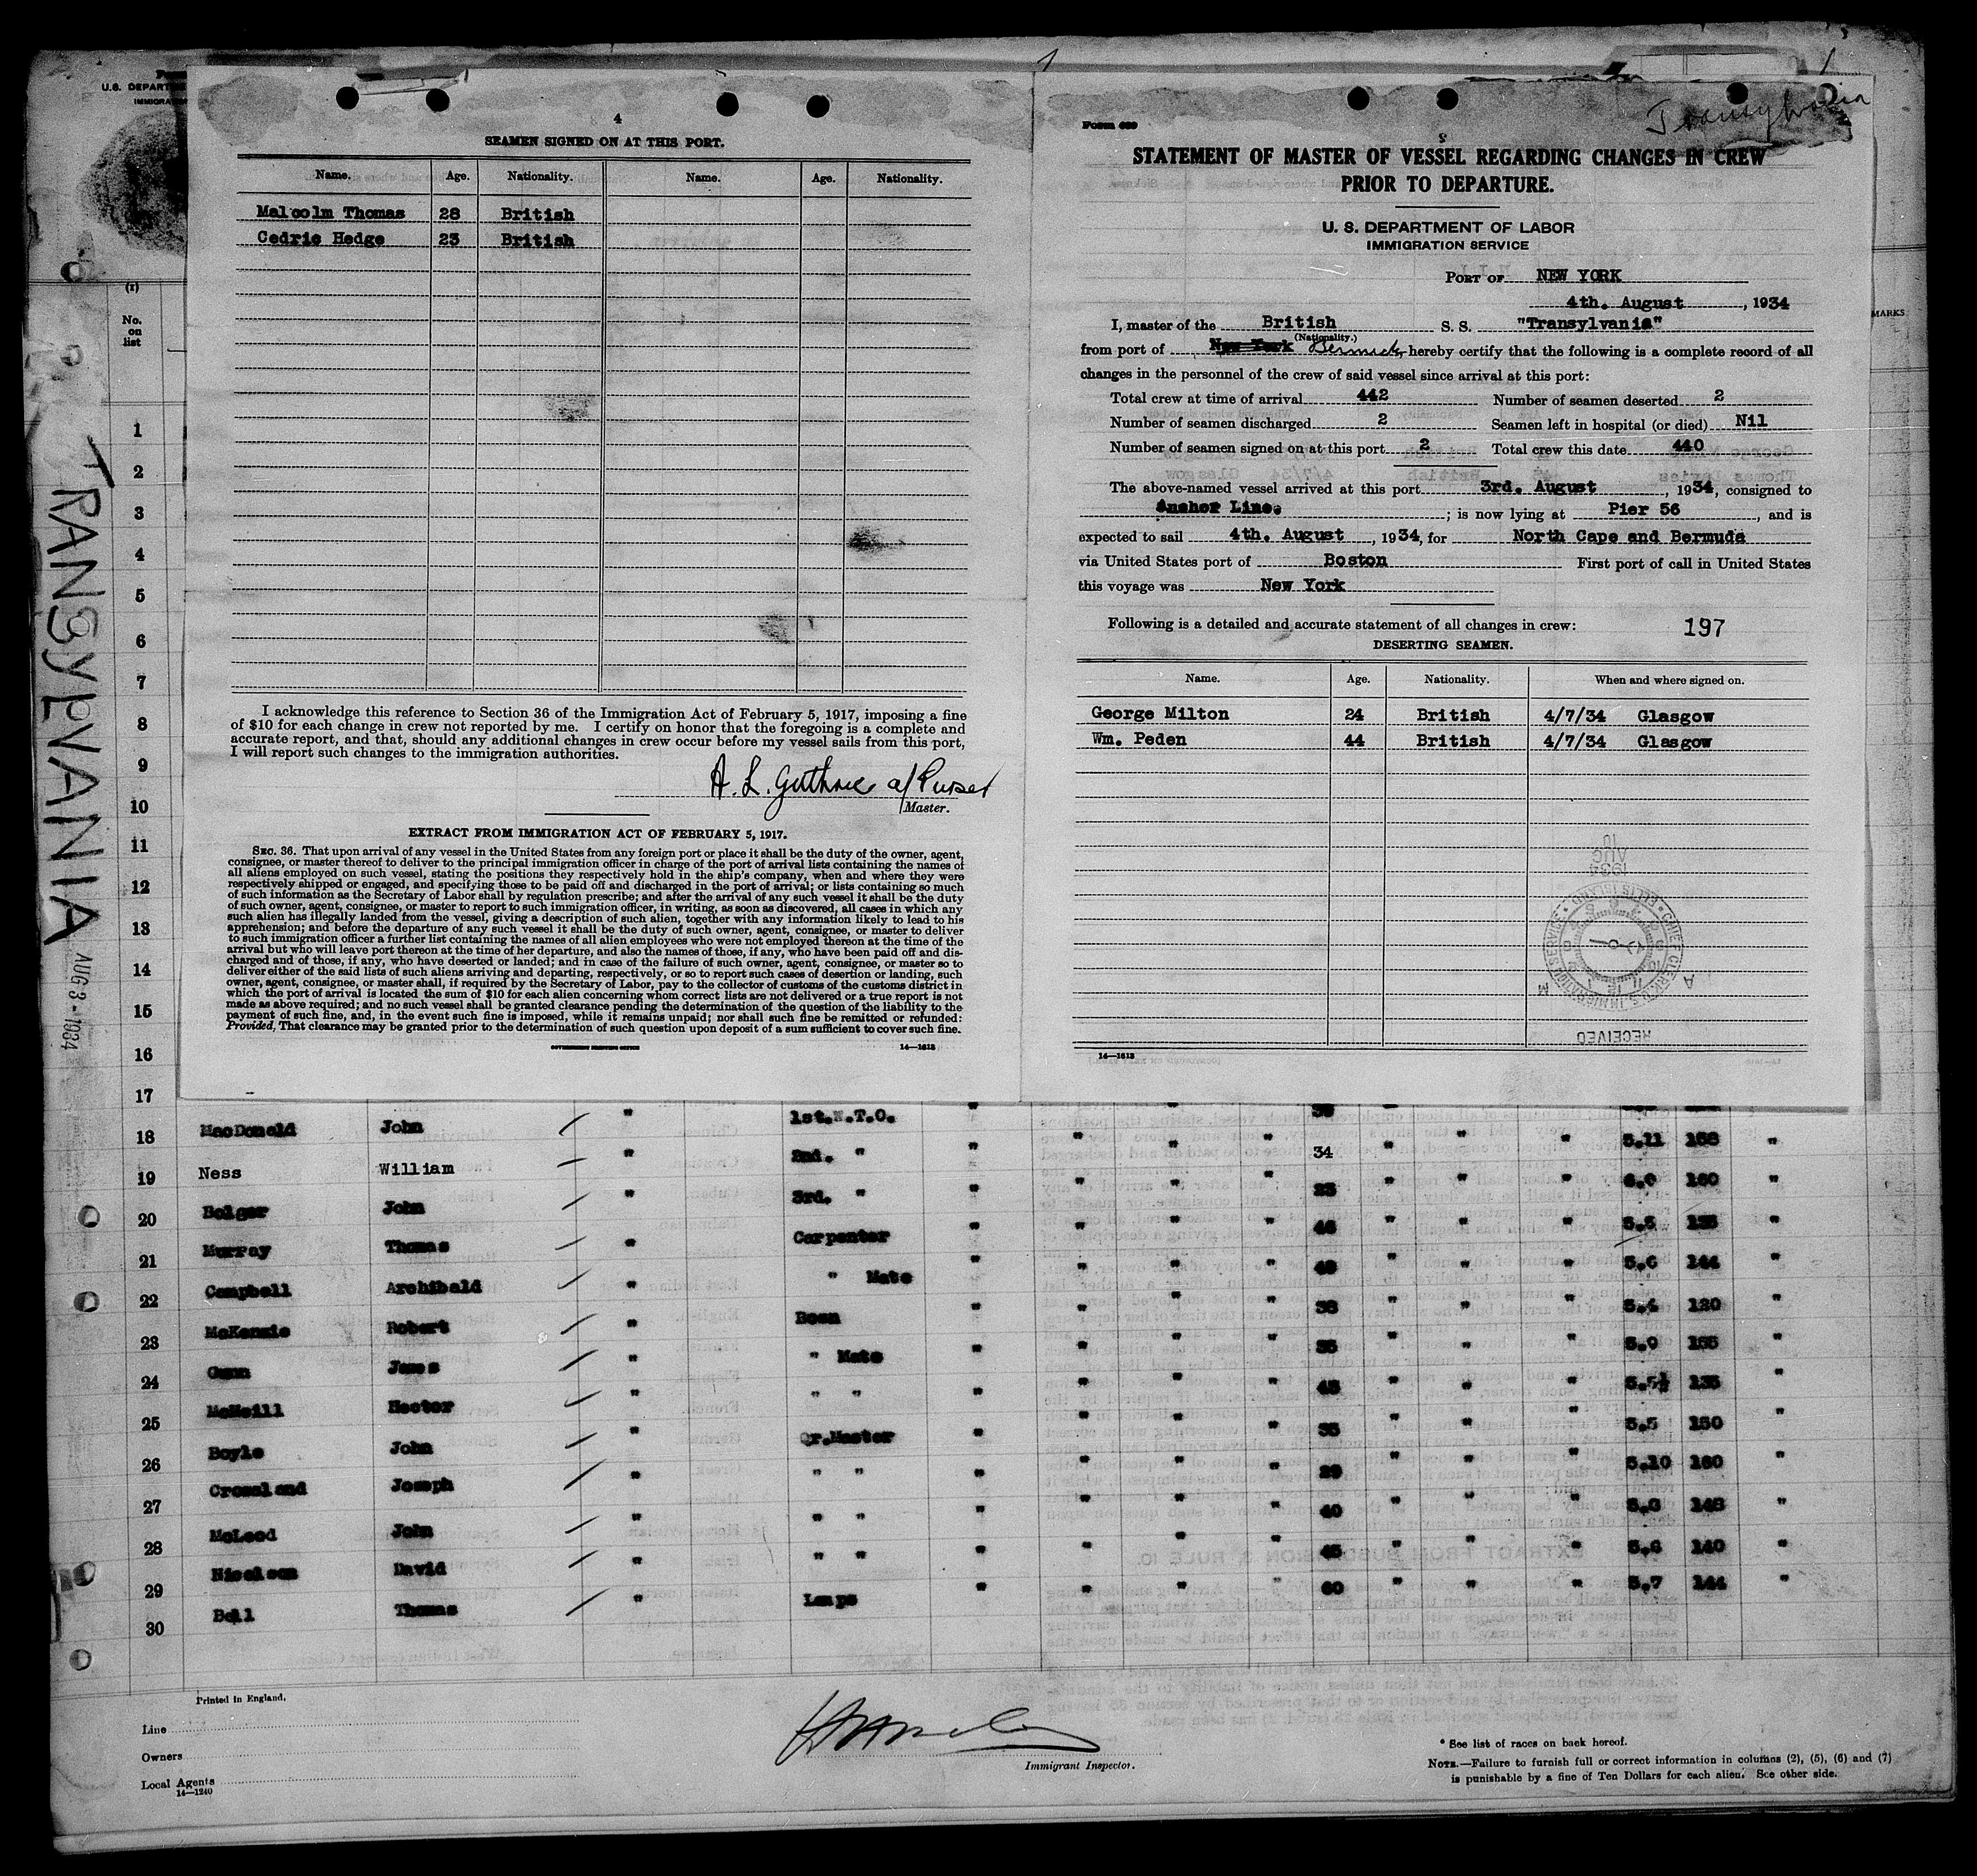 U.S. DEPART
IMMIGRA
(1)
No.
on
list
TRANSYLVANIA
AUG 3-1934
4
SEAMEN SIGNED ON AT THIS PORT.
Name. Age. Nationality. Name. Age. Nationality.
Malcolm Thomas 28 British
Cedric Hedge 23 British
I acknowledge this reference to Section 36 of the Immigration Act of February 5, 1917, imposing a fine
of $10 for each change in crew not reported by me. I certify on honor that the foregoing is a complete and
accurate report, and that, should any additional changes in crew occur before my vessel sails from this port,
I will report such changes to the immigration authorities.
A. L. Guthrie a/Purser
Master.
EXTRACT FROM IMMIGRATION ACT OF FEBRUARY 5, 1917.
SEC. 36. That upon arrival of any vessel in the United States from any foreign port or place it shall be the duty of the owner, agent,
consignee, or master thereof to deliver to the principal immigration officer in charge of the port of arrival lists containing the names of
all aliens employed on such vessel, stating the positions they respectively hold in the ship's company, when and where they were
respectively shipped or engaged, and specifying those to be paid off and discharged in the port of arrival; or lists containing so much
of such information as the Secretary of Labor shall by regulation prescribe; and after the arrival of any such vessel it shall be the duty
of such owner, agent, consignee, or master to report to such immigration officer, in writing, as soon as discovered, all cases in which any
such alien has illegally landed from the vessel, giving a description of such alien, together with any information likely to lead to his
apprehension; and before the departure of any such vessel it shall be the duty of such owner, agent, consignee, or master to deliver
to such immigration officer a further list containing the names of all alien employees who were not employed thereon at the time of the
arrival but who will leave port thereon at the time of her departure, and also the names of those, if any, who have been paid off and dis-
charged and of those, if any, who have deserted or landed; and in case of the failure of such owner, agent, consignee, or master so to
deliver either of the said lists of such aliens arriving and departing, respectively, or so to report such cases of desertion or landing, such
owner, agent, consignee, or master shall, if required by the Secretary of Labor, pay to the collector of customs of the customs district in
which the port of arrival is located the sum of $10 for each alien concerning whom correct lists are not delivered or a true report is not
made as above required; and no such vessel shall be granted clearance pending the determination of the question of the liability to the
payment of such fine, and, in the event such fine is imposed, while it remains unpaid; nor shall such fine be remitted or refunded:
Provided, That clearance may be granted prior to the determination of such question upon deposit of a sum sufficient to cover such fine.
GOVERNMENT PRINTING OFFICE 14—1613
Transylvania
Form 689
STATEMENT OF MASTER OF VESSEL REGARDING CHANGES IN CREW
PRIOR TO DEPARTURE.
U. S. DEPARTMENT OF LABOR
IMMIGRATION SERVICE
PORT OF NEW YORK
4th. August, 1934
I, master of the British S. S. "Transylvania"
(Nationality.)
from port of New York Bermuda hereby certify that the following is a complete record of all
changes in the personnel of the crew of said vessel since arrival at this port:
Total crew at time of arrival 442 Number of seamen deserted 2
Number of seamen discharged 2 Seamen left in hospital (or died) Nil
Number of seamen signed on at this port 2 Total crew this date 440
The above-named vessel arrived at this port 3rd. August, 1934, consigned to
Anchor Line. ; is now lying at Pier 56, and is
expected to sail 4th. August, 1934, for North Cape and Bermuda
via United States port of Boston First port of call in United States
this voyage was New York
Following is a detailed and accurate statement of all changes in crew: 197
DESERTING SEAMEN.
Name. Age. Nationality. When and where signed on.
George Milton 24 British 4/7/34 Glasgow
Wm. Peden 44 British 4/7/34 Glasgow
RECEIVED
14—1613
MARKS
1
2
3
4
5
6
7
8
9
10
11
12
13
14
15
16
17
18 MacDonald John " 1st.W.T.O. "
19 Ness William " 2nd. " " " " " 34 " " " 5.11 168 "
20 Bolger John " 3rd. " " " " " 23 " " " 6.0 160 "
21 Murray Thomas " Carpenter " " " " 46 " " " 5.5 135 "
22 Campbell Archibald " " Mate " " " " 49 " " " 5.6 144 "
23 McKenzie Robert " Bosn " " " 38 " " " 5.4 120 "
24 Gunn James " " Mate " " " " 35 " " " 5.9 155 "
25 McNeill Hector " " " " " " " 45 " " " 5.5½ 135 "
26 Boyle John " Qr.Master " " " " 35 " " " 5.5 150 "
27 Crossland Joseph " " " " " " " 29 " " " 5.10 160 "
28 McLeod John " " " " " " " 40 " " " 5.8 148 "
29 Nicolson David " " " " " " 45 " " " 5.6 140 "
30 Bell Thomas " Lamps " " " " 60 " " " 5.7 144 "
Printed in England.
Line
Owners
Local Agents
14—1240
Immigrant Inspector.
* See list of races on back hereof.
NOTE.—Failure to furnish full or correct information in columns (2), (5), (6) and (7)
is punishable by a fine of Ten Dollars for each alien. See other side.